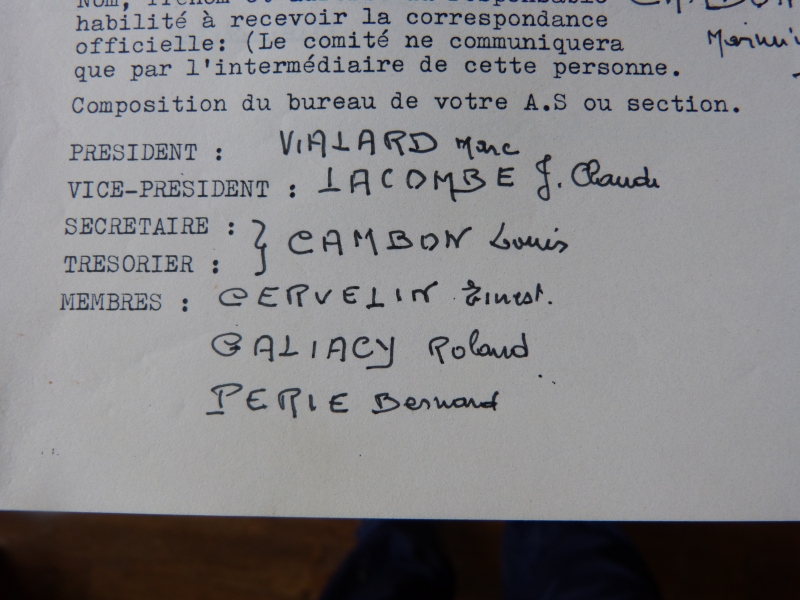 Nom, Prénom et
habilité à recevoir la correspondance
officielle: (Le comité ne communiquera
que par l'intermédiaire de cette personne.
Composition du bureau de votre A.S ou section.
PRESIDENT : VIALARD Marc
VICE-PRESIDENT : LACOMBE J. Claude
SECRETAIRE : } CAMBON Louis
TRESORIER :
MEMBRES : CERVELIN Ernest.
GALIACY Roland
PERIE Bernard